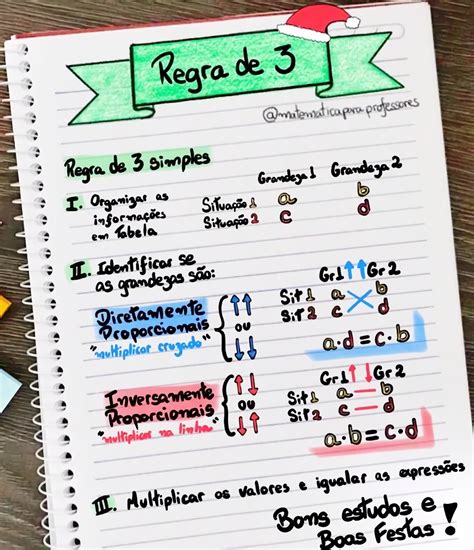 Regra de 3
@matematicapara.professores
Regra de 3 simples
Grandeza 1 Grandeza 2
I. Organizar as informações em Tabela
Situação 1 a b
Situação 2 c d
II. Identificar se as grandezas são:
Gr1 ↑↑ Gr2
Diretamente Proporcionais
"multiplicar cruzado"
↑↑
ou
↓↓
Sit 1 a b
Sit 2 c d
a·d = c·b
Inversamente Proporcionais
"multiplicar na linha"
↑↓
ou
↓↑
Gr1 ↑↓ Gr2
Sit 1 a — b
Sit 2 c — d
a·b = c·d
III. Multiplicar os valores e igualar as expressões
Bons estudos e
Boas Festas!